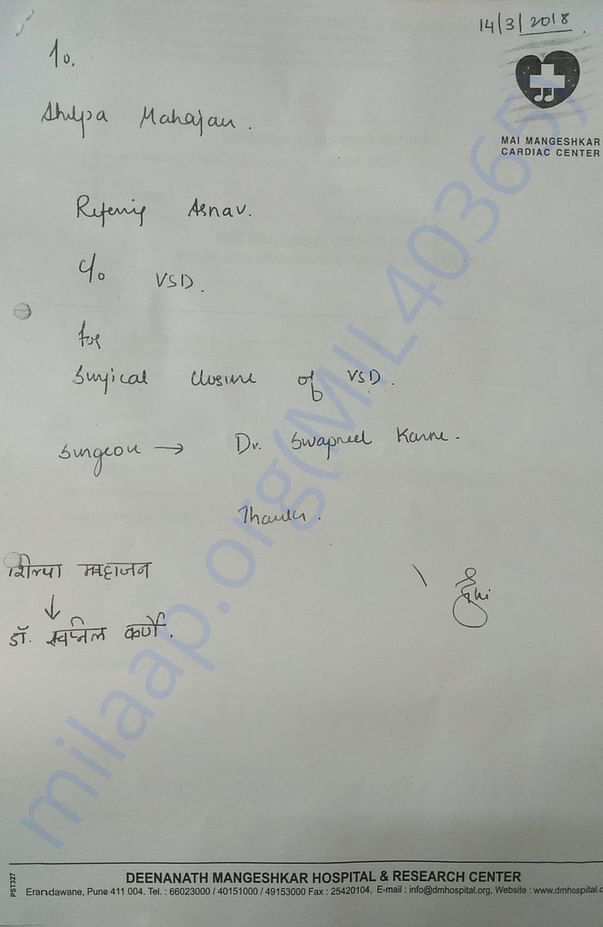 14/3/2018
MAI MANGESHKAR
CARDIAC CENTER
To.
Shilpa Mahajan.
Referring Arnav.
c/o VSD.
for
Surgical closure of VSD.
Surgeon → Dr. Swapneel Karne.
Thanks.
शिल्पा महाजन
↓
डॉ. स्वप्निल कर्णे.
milaap.org(MIL403365)
PST327
DEENANATH MANGESHKAR HOSPITAL & RESEARCH CENTER
Erandawane, Pune 411 004. Tel. : 66023000 / 40151000 / 49153000 Fax : 25420104. E-mail : info@dmhospital.org, Website : www.dmhospital.o